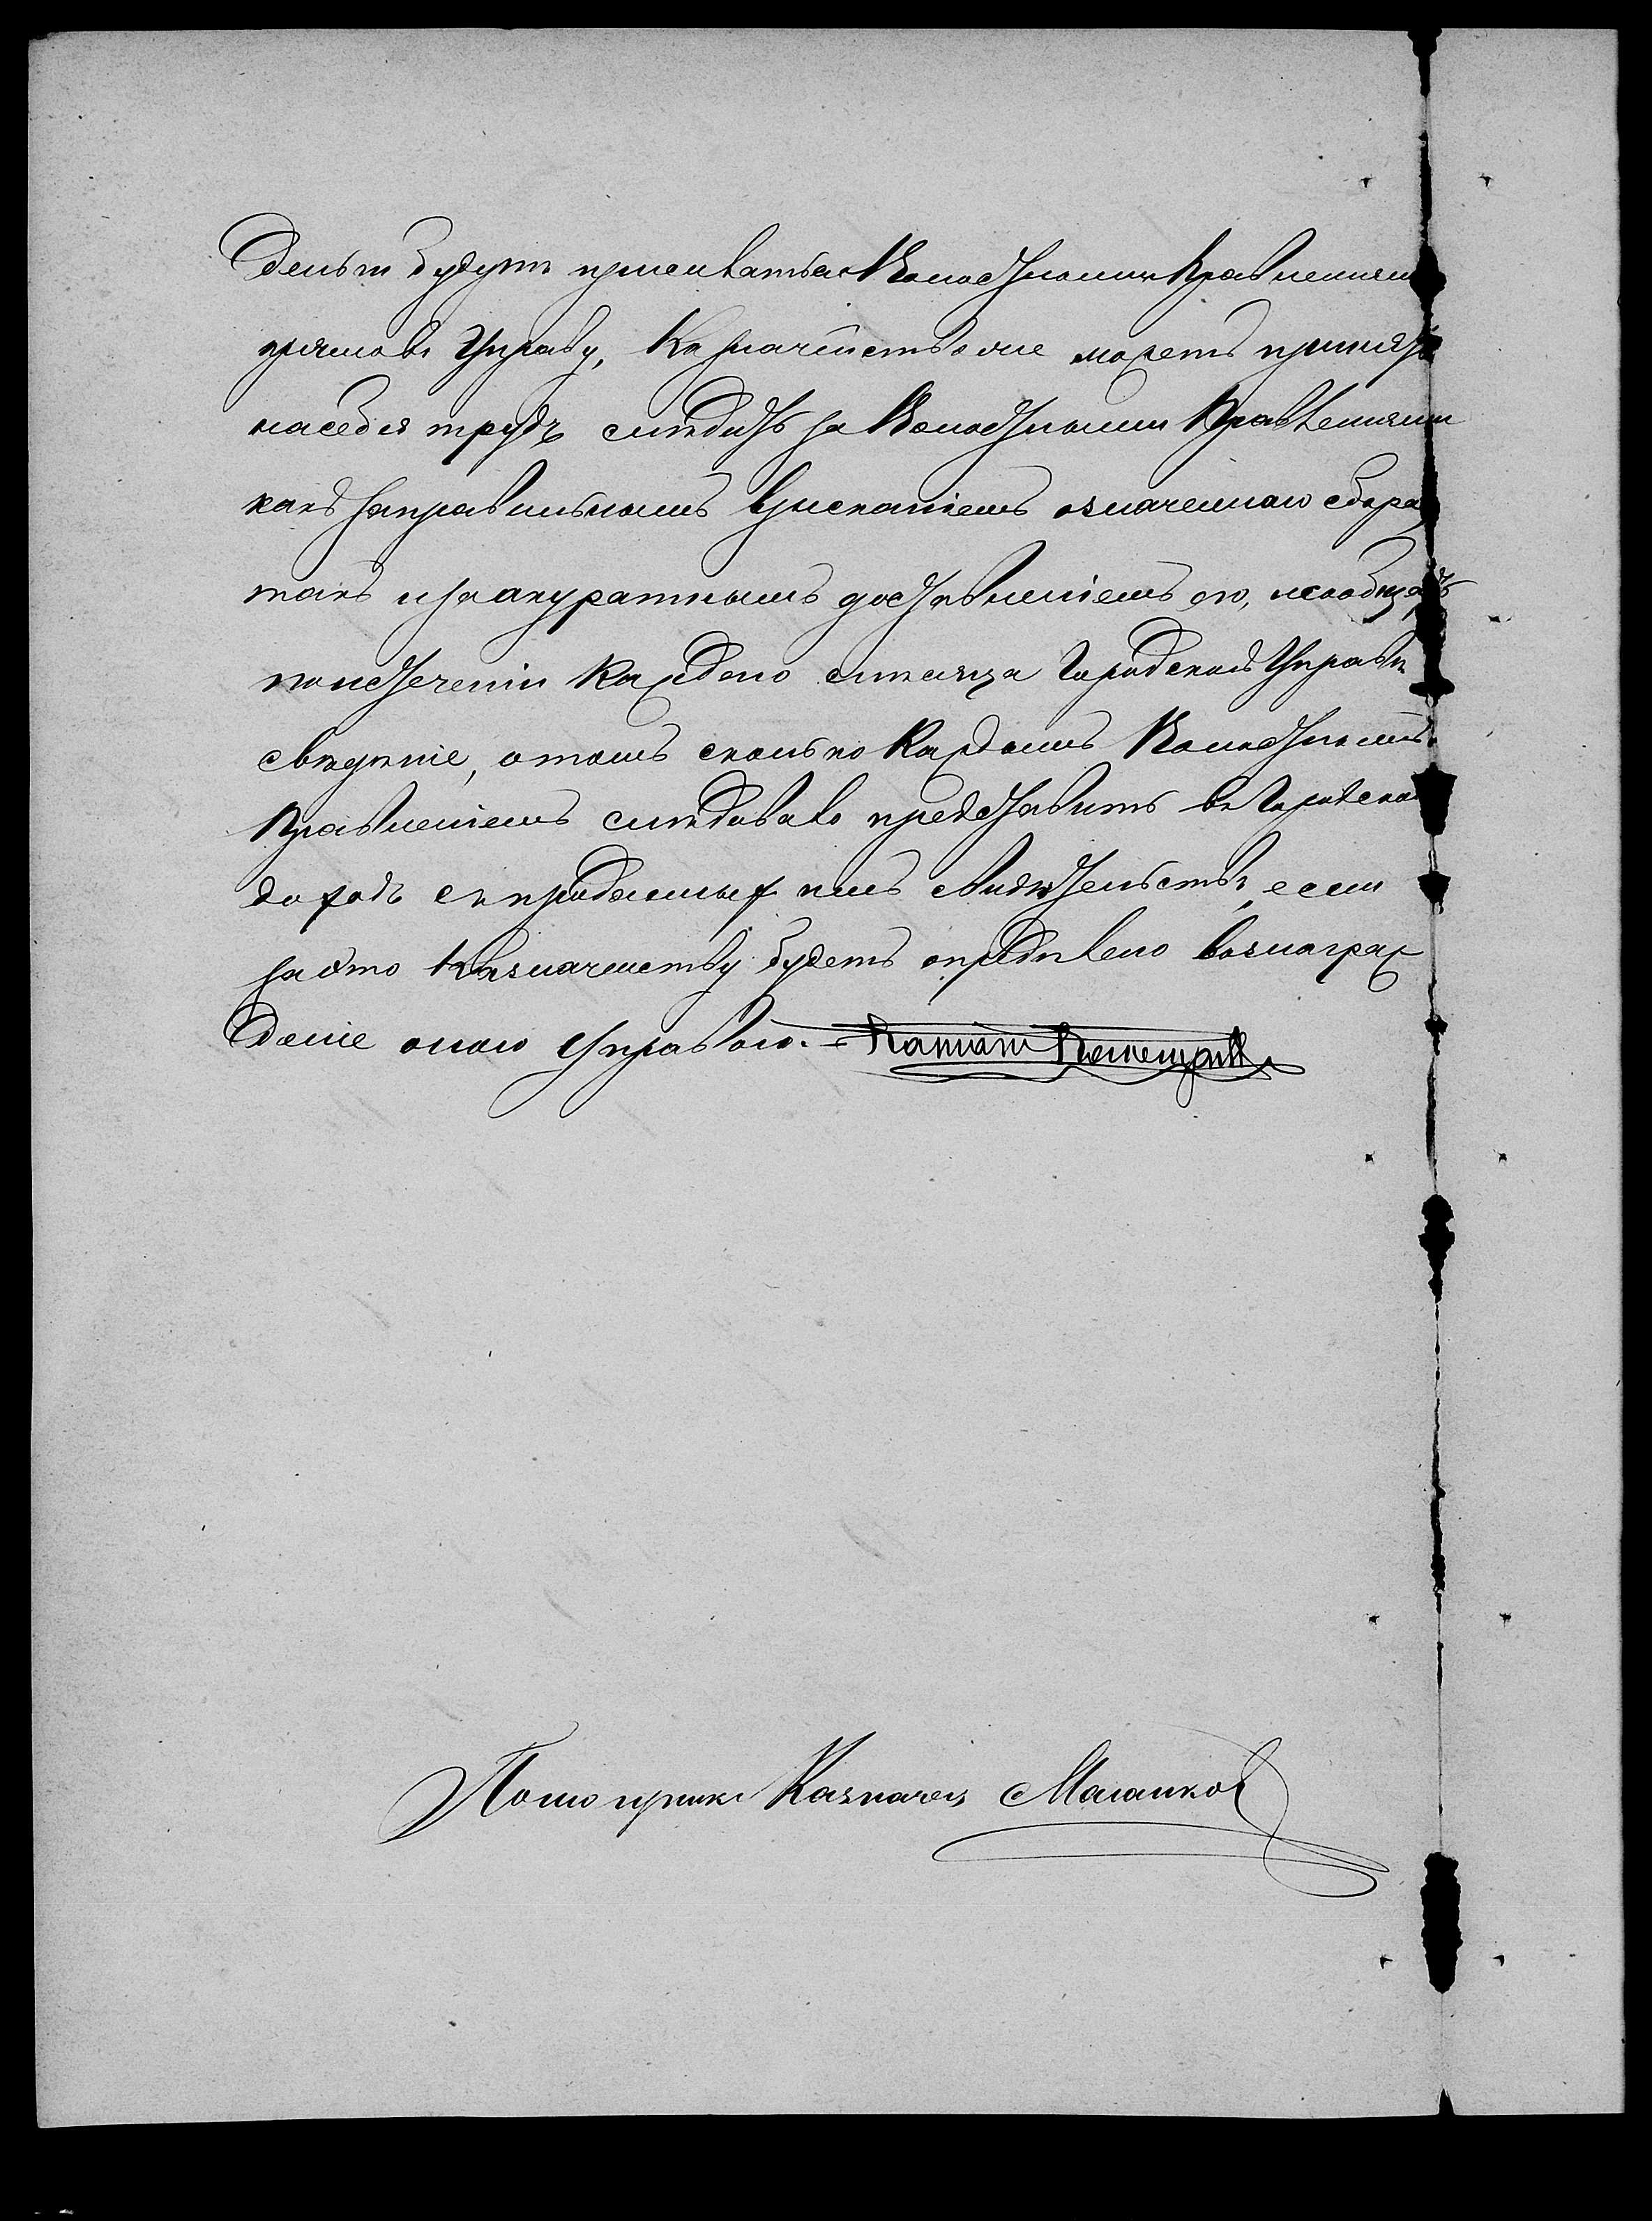 Деньги будутъ присылаться Волостными Правлениями
прямо въ Управу, Казначейство же можетъ принять
на себя трудъ слѣдить за Волостными Правлениями
какъ за правильнымъ взысканіемъ означеннаго сбора
такъ и за акуратнымъ доставленіемъ его, и сообщать
по истеченіи каждаго мѣсяца Городской Управѣ
свѣдѣніе, о томъ сколько каждымъ Волостнымъ
Правленіемъ слѣдовало представить въ Городской
доходъ съ проданныхъ имъ свидѣтельствъ, если
за это Казначейству будетъ опредѣлено вознаграж
деніе оною Управою. –
Казначей
Помощникъ Казначея